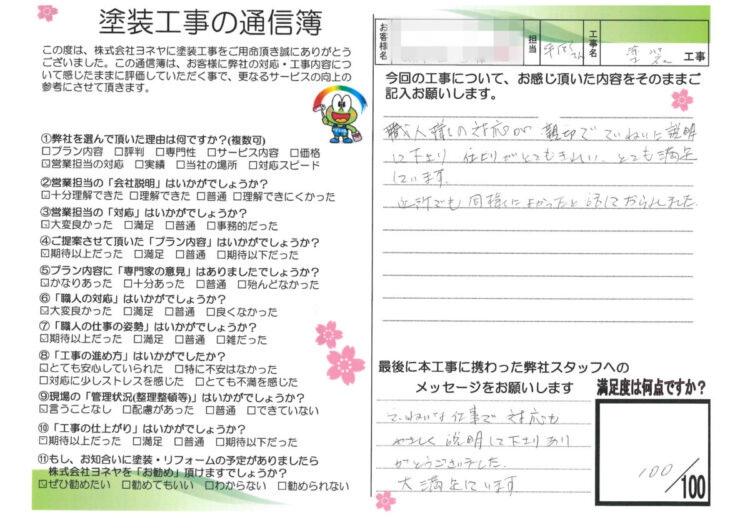 塗装工事の通信簿
この度は、株式会社ヨネヤに塗装工事をご用命頂き誠にありがとう
ございました。この通信簿は、お客様に弊社の対応・工事内容につい
て感じたままに評価していただく事で、更なるサービスの向上の
参考にさせて頂きます。
①弊社を選んで頂いた理由は何ですか?(複数可)
□プラン内容 □評判 □専門性 □サービス内容 □価格
☑営業担当の対応 □実績 □当社の場所 □対応スピード
②営業担当の「会社説明」はいかがでしょうか?
☑十分理解できた □理解できた □普通 □理解できにくかった
③営業担当の「対応」はいかがでしょうか?
☑大変良かった □満足 □普通 □事務的だった
④ご提案させて頂いた「プラン内容」はいかがでしょうか?
☑期待以上だった □満足 □普通 □期待以下だった
⑤プラン内容に「専門家の意見」はありましたでしょうか?
☑かなりあった □十分あった □普通 □殆んどなかった
⑥「職人の対応」はいかがでしょうか?
☑大変良かった □満足 □普通 □良くなかった
⑦「職人の仕事の姿勢」はいかがでしょうか?
☑期待以上だった □満足 □普通 □雑だった
⑧「工事の進め方」はいかがでしたか?
☑とても安心していられた □特に不安はなかった
□対応に少しストレスを感じた □とても不満を感じた
⑨現場の「管理状況(整理整頓等)」はいかがでしょうか?
☑言うことなし □配慮があった □普通 □できていない
⑩「工事の仕上がり」はいかがでしょうか?
☑期待以上だった □満足 □普通 □期待以下だった
⑪もし、お知合いに塗装・リフォームの予定がありましたら
株式会社ヨネヤを「お勧め」頂けますでしょうか?
☑ぜひ勧めたい □勧めてもいい □わからない □勧められない
お客様名 担当 工事名 塗装 工事
今回の工事について、お感じ頂いた内容をそのままご
記入お願いします。
職人様の対応が 親切で ていねいに説明
して下さり 仕上りがとてもきれい、とても満足
しています。
近所でも 同様に よかったと 話しておられました
最後に本工事に携わった弊社スタッフへの
メッセージをお願いします
ていねいな仕事で 対応も
やさしく 説明して下さりあり
がとうございました。
大満足しています
満足度は何点ですか?
100/100